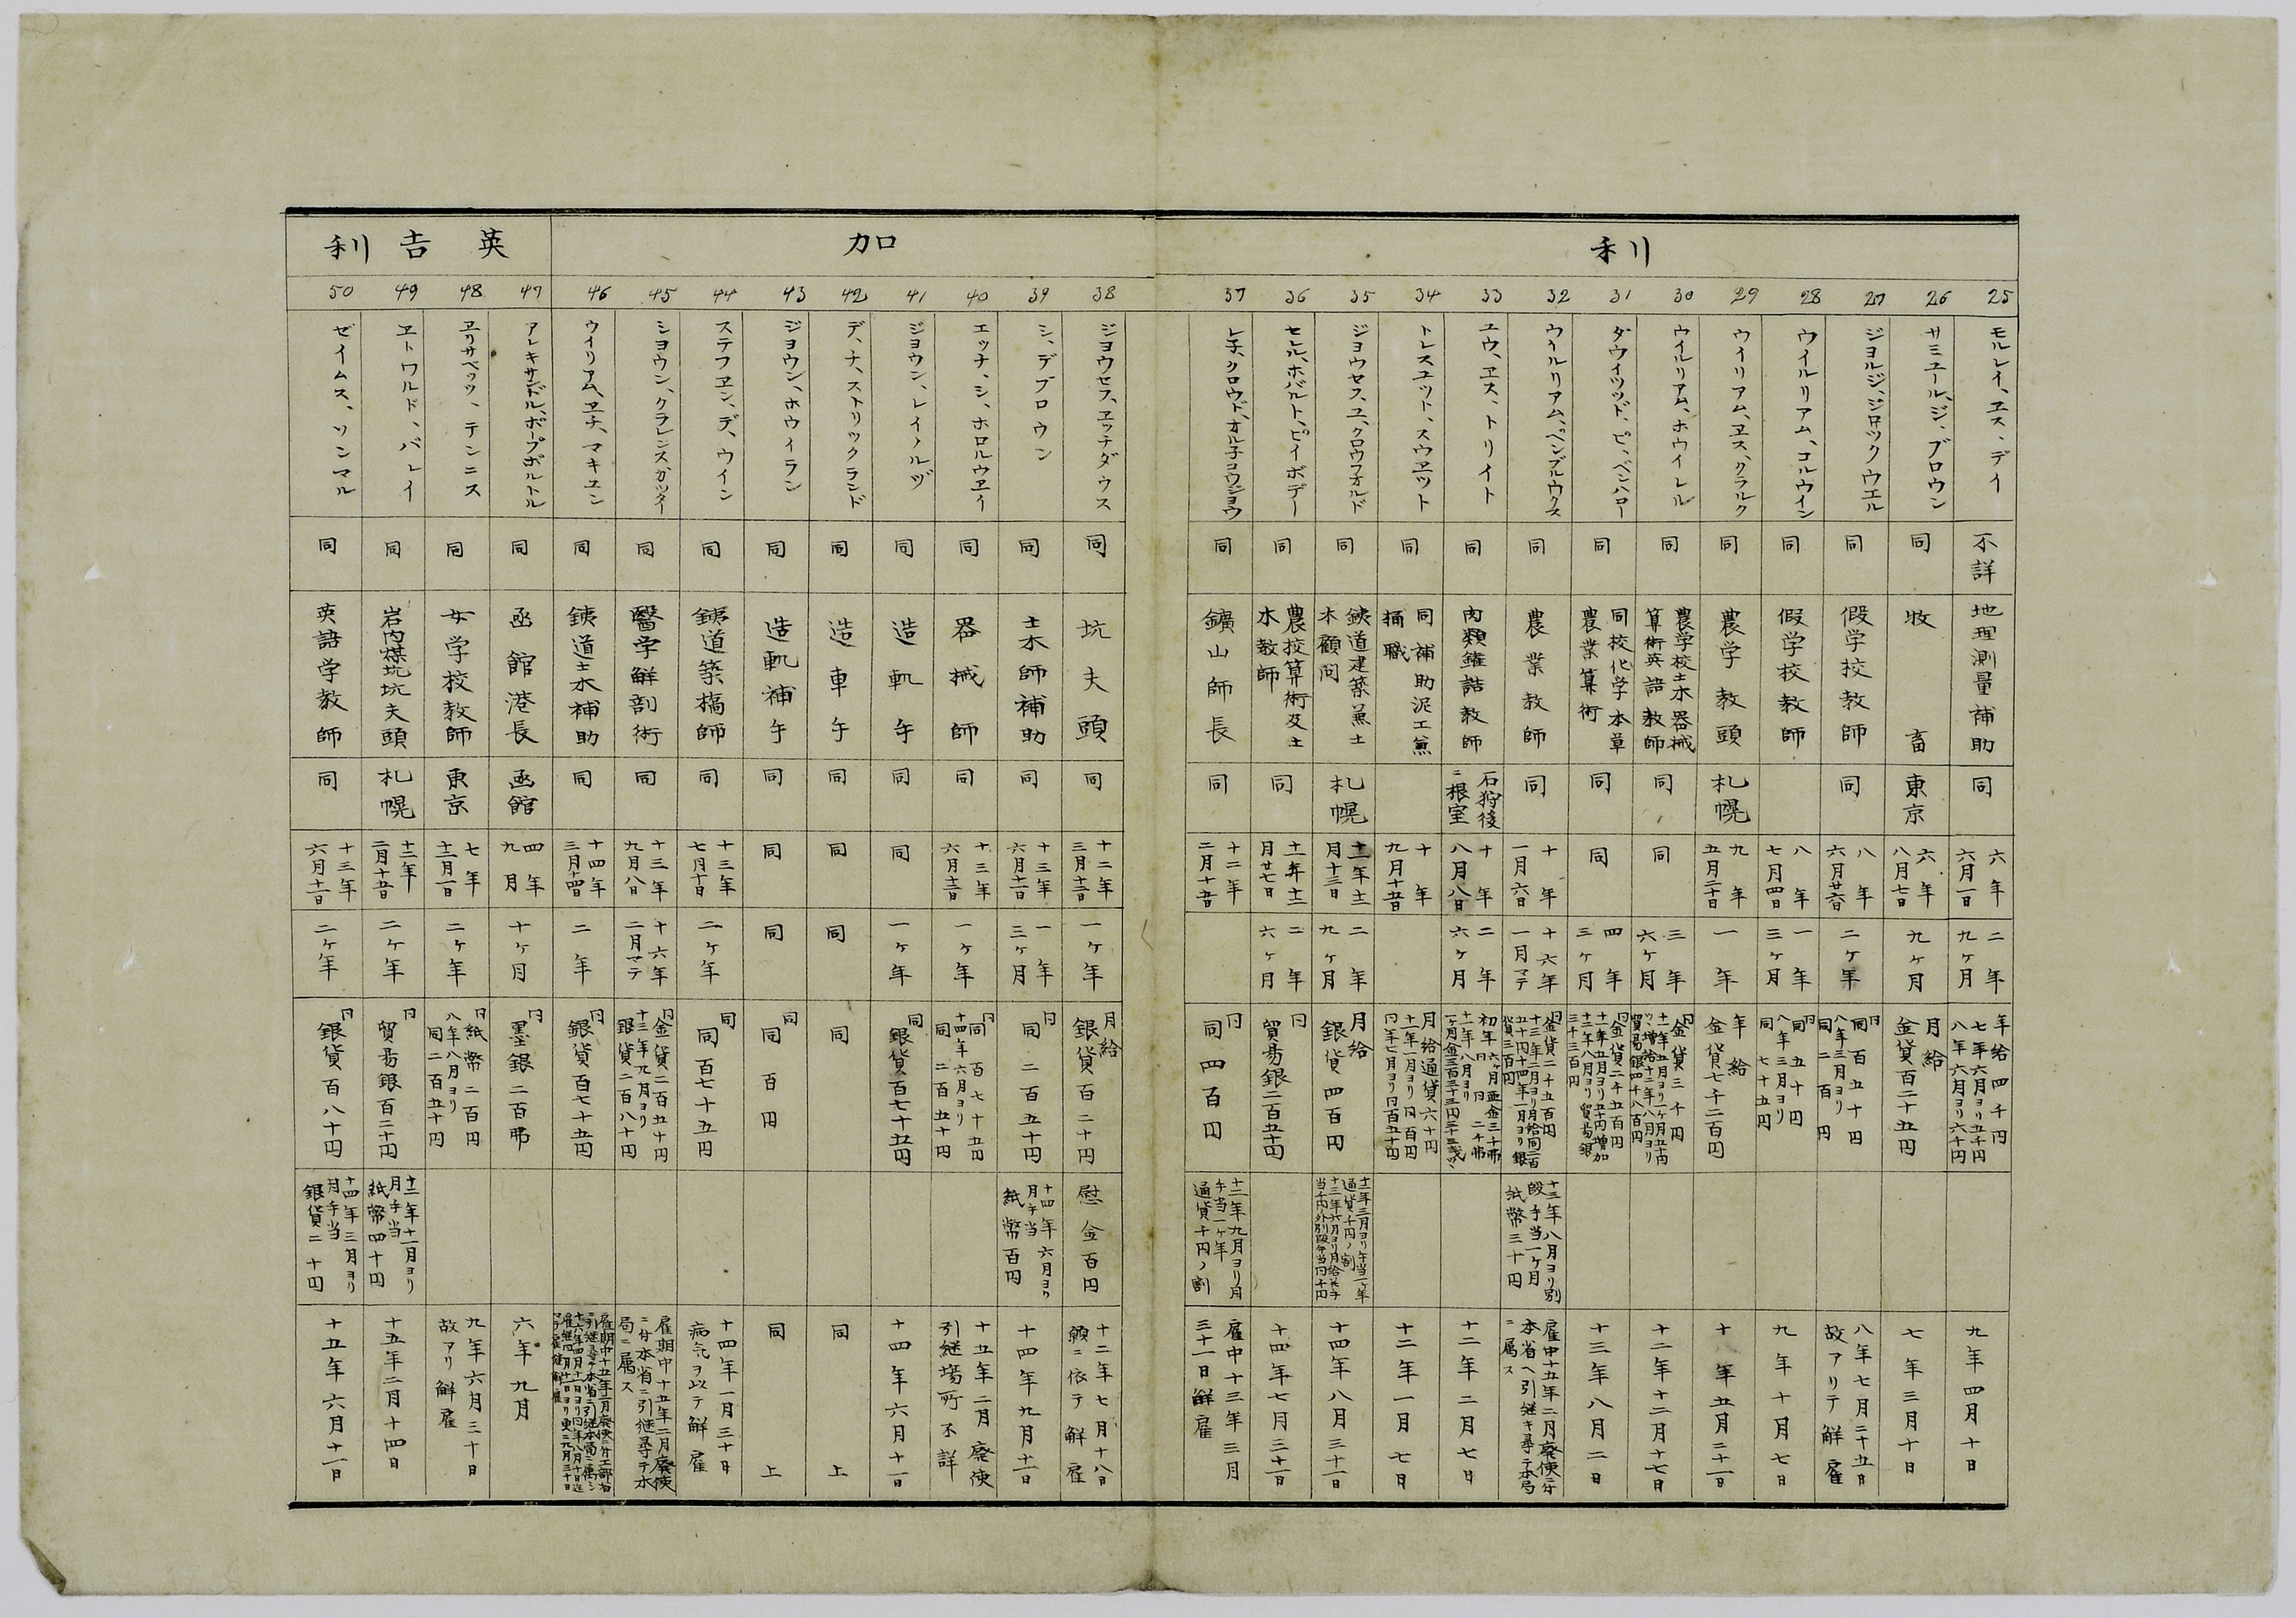 利
加
英吉利
25
モルレイ、ヱス、デイ
不詳
地理測量補助
同
六年
六月一日
二年
九ヶ月
年給四千円
七年六月ヨリ五千円
八年六月ヨリ六千円
九年四月十日
26
サミユール、ジ、ブロウン
同
牧畜
東京
六年
八月七日
九ヶ月
月給
金貨百二十五円
七年三月十日
27
ジヨルジ、ジロックウエル
同
假学校教師
同
八年
六月廿六日
二ヶ年
同百五十円
八年三月ヨリ
同二百円
八年七月二十五日
故アリテ解雇
28
ウイルリアム、コルウイン
同
假学校教師
八年
七月四日
一年
三ヶ月
同五十円
八年三月ヨリ
同七十五円
九年十月七日
29
ウイリアム、ヱス、クラルク
同
農学教頭
札幌
九年
五月二十日
一年
年給
金貨七千二百円
十年五月二十一日
30
ウイルリアム、ホウイレル
同
農学校土木器械
算術英語教師
同
同
三年
六ヶ月
金貨三千円
十二年十二月十七日
31
ダウイツツド、ピ、ペンハロー
同
同校化学本草
農業算術
同
同
四年
三ヶ月
金貨二千五百円
十三年八月二日
32
ウイルリアム、ペンブルウクス
同
農業教師
同
十年
一月六日
十六年
一月マテ
金貨二千五百円
十三年八月ヨリ別
段手当一ヶ月
紙幣三十円
雇中十五年二月廃使ニ付
本省ヘ引継キ尋テ本局
ニ属ス
33
ユウ、ヱス、トリイト
同
肉類鑵詰教師
石狩後
ニ根室
十年
八月八日
二年
六ヶ月
十二年二月七日
34
トレスユット、スウヱット
同
同補助泥工兼
桶職
十年
九月十五日
月給通貨六十円
十一年一月ヨリ円百円
円年七月ヨリ円百五十円
十二年一月七日
35
ジヨウセフ、ユ、クロウフオルド
同
鉄道建築兼土
木顧問
札幌
十一年十二
月十三日
二年
九ヶ月
月給
銀貨四百円
十四年八月三十一日
36
セシル、ホバルト、ピイボデー
同
農校算術及土
木教師
同
十一年十二
月廿七日
二年
六ヶ月
円
貿易銀二百五十円
十四年七月三十一日
37
レネ、クロウド、オルチヨウジヨウ
同
鑛山師長
同
十二年
二月十五日
円
同四百円
十二年九月ヨリ月
手当一ヶ年
通貨千円ノ割
雇中十三年三月
三十一日解雇
38
ジヨウセフ、ヱッチダウス
同
坑夫頭
同
十二年
三月十三日
一ヶ年
月給
銀貨百二十円
慰金百円
十二年七月十八日
願ニ依テ解雇
39
シ、デブロウン
同
土木師補助
同
十三年
六月十二日
一年
三ヶ月
円
同二百五十円
十四年六月ヨリ
月手当
紙幣百円
十四年九月十一日
40
エッチ、シ、ホロルウヱイ
同
器械師
同
十三年
六月十二日
一ヶ年
円
同百七十五円
十四年六月ヨリ
同二百五十円
十五年二月廃使
引継場所不詳
41
ジヨウン、レイノルヅ
同
造軌午
同
同
一ヶ年
同
銀貨百七十五円
十四年六月十一日
42
デ、ナ、ストリックランド
同
造車午
同
同
同
同
同上
43
ジヨウン、ホウィラン
同
造軌補午
同
同
同
同
同百円
同上
44
ステフヱン、デ、ウイン
同
鉄道築橋師
同
十三年
七月十日
二ヶ年
同
同百七十五円
十四年一月三十日
病気ヲ以テ解雇
45
シヨウン、クラレンスカッター
同
醫学解剖術
同
十三年
九月八日
十六年
二月マテ
円
金貨二百五十円
十三年九月ヨリ
銀貨二百八十円
雇期中十五年二月廃使
ニ付本省ニ引継尋テ本
局ニ属ス
46
ウイリアム、ヱチ、マキユン
同
鉄道土木補助
同
十四年
三月十四日
二年
円
銀貨百七十五円
47
アレキサンドル、ポープポルトル
同
函館港長
函館
四年
九月
十ヶ月
円
墨銀二百弗
六年九月
48
ヱリサベッツ、テンニス
同
女学校教師
東京
七年
十二月一日
二ヶ年
円
紙幣二百円
八年八月ヨリ
同二百五十円
九年六月三十日
故アリ解雇
49
ヱトワルド、バレイ
同
岩内煤坑坑夫頭
札幌
十三年
二月十五日
二ヶ年
円
貿易銀百二十円
十三年十一月ヨリ
月手当
紙幣四十円
十五年二月十四日
50
ゼイムス、ソンマル
同
英語学教師
同
十三年
六月十二日
二ヶ年
円
銀貨百八十円
十四年三月ヨリ
月手当
銀貨二十円
十五年六月十一日